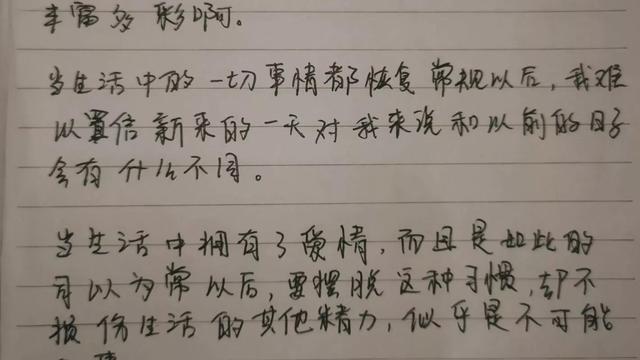 丰富多彩啊。
当生活中的一切事情都恢复常规以后，我难
以置信新来的一天对我来说和以前的日子
会有什么不同。
当生活中拥有了爱情，而且是如此的
司以为常以后，要摆脱这种习惯，却不
损伤生活的其他精力，似乎是不可能